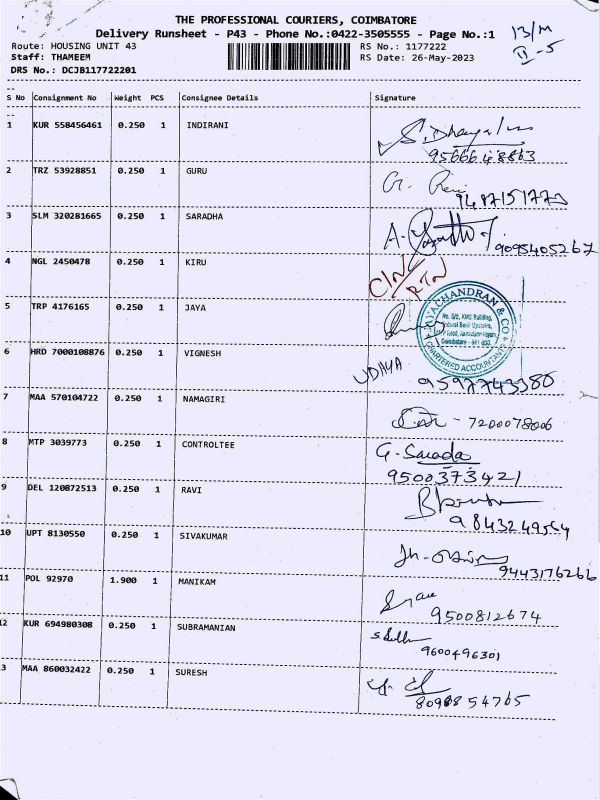 THE PROFESSIONAL COURIERS, COIMBATORE
Delivery Runsheet - P43 - Phone No.:0422-3505555 - Page No.:1
13/M
II-5
Route: HOUSING UNIT 43
RS No.: 1177222
Staff: THAMEEM
RS Date: 26-May-2023
DRS No.: DCJB117722201
S No Consignment No Weight PCS Consignee Details Signature
1 KUR 558456461 0.250 1 INDIRANI
2 TRZ 53928851 0.250 1 GURU
G.
3 SLM 320281665 0.250 1 SARADHA
A.
9095405267
4 NGL 2450478 0.250 1 KIRU
RTN
5 TRP 4176165 0.250 1 JAYA
JAYACHANDRAN & CO
CHARTERED ACCOUNTANTS
6 HRD 7000108876 0.250 1 VIGNESH
UDHYA
9597743380
7 MAA 570104722 0.250 1 NAMAGIRI
- 7200078006
8 MTP 3039773 0.250 1 CONTROLTEE
G. Sarada
9500373421
9 DEL 120872513 0.250 1 RAVI
10 UPT 8130550 0.250 1 SIVAKUMAR
9443176266
11 POL 92970 1.900 1 MANIKAM
9500812674
12 KUR 694980308 0.250 1 SUBRAMANIAN
9600496301
3 MAA 860032422 0.250 1 SURESH